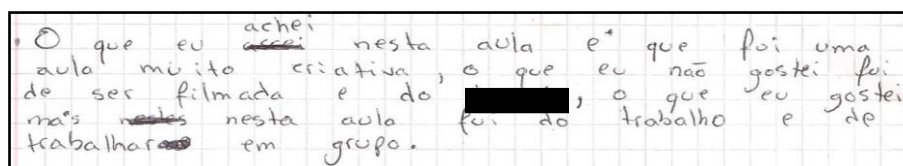 achei
O que eu nesta aula e' que foi uma
aula muito criativa, o que eu não gostei foi
de ser filmada e do , o que eu gostei
mais nesta aula foi do trabalho e de
trabalhar em grupo.